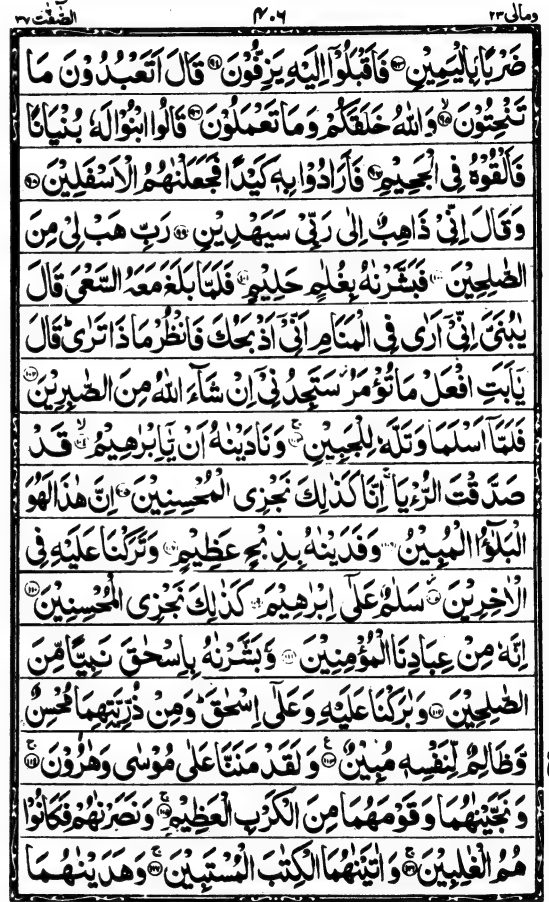 ومالی ٢٣ ٤٠٦ الصّٰٓفّٰت ٣٧
ضَرْبًۢا بِالْیَمِیْنِ ﴿۹۳﴾ فَاَقْبَلُوْۤا اِلَیْهِ یَزِفُّوْنَ ﴿۹۴﴾ قَالَ اَتَعْبُدُوْنَ مَا
تَنْحِتُوْنَ ﴿ۙ۹۵﴾ وَاللّٰهُ خَلَقَكُمْ وَمَا تَعْمَلُوْنَ ﴿۹۶﴾ قَالُوا ابْنُوْا لَهٗ بُنْیَانًا
فَاَلْقُوْهُ فِی الْجَحِیْمِ ﴿۹۷﴾ فَاَرَادُوْا بِهٖ كَیْدًا فَجَعَلْنٰهُمُ الْاَسْفَلِیْنَ ﴿۹۸﴾
وَقَالَ اِنِّیْ ذَاهِبٌ اِلٰی رَبِّیْ سَیَهْدِیْنِ ﴿۹۹﴾ رَبِّ هَبْ لِیْ مِنَ
الصّٰلِحِیْنَ ﴿۱۰۰﴾ فَبَشَّرْنٰهُ بِغُلٰمٍ حَلِیْمٍ ﴿۱۰۱﴾ فَلَمَّا بَلَغَ مَعَهُ السَّعْیَ قَالَ
یٰبُنَیَّ اِنِّیْۤ اَرٰی فِی الْمَنَامِ اَنِّیْۤ اَذْبَحُكَ فَانْظُرْ مَاذَا تَرٰی ؕ قَالَ
یٰۤاَبَتِ افْعَلْ مَا تُؤْمَرُ ؗ سَتَجِدُنِیْۤ اِنْ شَآءَ اللّٰهُ مِنَ الصّٰبِرِیْنَ ﴿۱۰۲﴾
فَلَمَّاۤ اَسْلَمَا وَتَلَّهٗ لِلْجَبِیْنِ ﴿ۚ۱۰۳﴾ وَنَادَیْنٰهُ اَنْ یّٰۤاِبْرٰهِیْمُ ﴿ۙ۱۰۴﴾ قَدْ
صَدَّقْتَ الرُّءْیَا ۚ اِنَّا كَذٰلِكَ نَجْزِی الْمُحْسِنِیْنَ ﴿۱۰۵﴾ اِنَّ هٰذَا لَهُوَ
الْبَلٰٓؤُا الْمُبِیْنُ ﴿۱۰۶﴾ وَفَدَیْنٰهُ بِذِبْحٍ عَظِیْمٍ ﴿۱۰۷﴾ وَتَرَكْنَا عَلَیْهِ فِی
الْاٰخِرِیْنَ ﴿۱۰۸﴾ سَلٰمٌ عَلٰۤی اِبْرٰهِیْمَ ﴿۱۰۹﴾ كَذٰلِكَ نَجْزِی الْمُحْسِنِیْنَ ﴿۱۱۰﴾
اِنَّهٗ مِنْ عِبَادِنَا الْمُؤْمِنِیْنَ ﴿۱۱۱﴾ وَبَشَّرْنٰهُ بِاِسْحٰقَ نَبِیًّا مِّنَ
الصّٰلِحِیْنَ ﴿۱۱۲﴾ وَبٰرَكْنَا عَلَیْهِ وَعَلٰۤی اِسْحٰقَ ؕ وَمِنْ ذُرِّیَّتِهِمَا مُحْسِنٌ
وَّظَالِمٌ لِّنَفْسِهٖ مُبِیْنٌ ﴿۠۱۱۳﴾ وَلَقَدْ مَنَنَّا عَلٰی مُوْسٰی وَهٰرُوْنَ ﴿ۚ۱۱۴﴾
وَنَجَّیْنٰهُمَا وَقَوْمَهُمَا مِنَ الْكَرْبِ الْعَظِیْمِ ﴿ۚ۱۱۵﴾ وَنَصَرْنٰهُمْ فَكَانُوْا
هُمُ الْغٰلِبِیْنَ ﴿ۚ۱۱۶﴾ وَاٰتَیْنٰهُمَا الْكِتٰبَ الْمُسْتَبِیْنَ ﴿ۚ۱۱۷﴾ وَهَدَیْنٰهُمَا